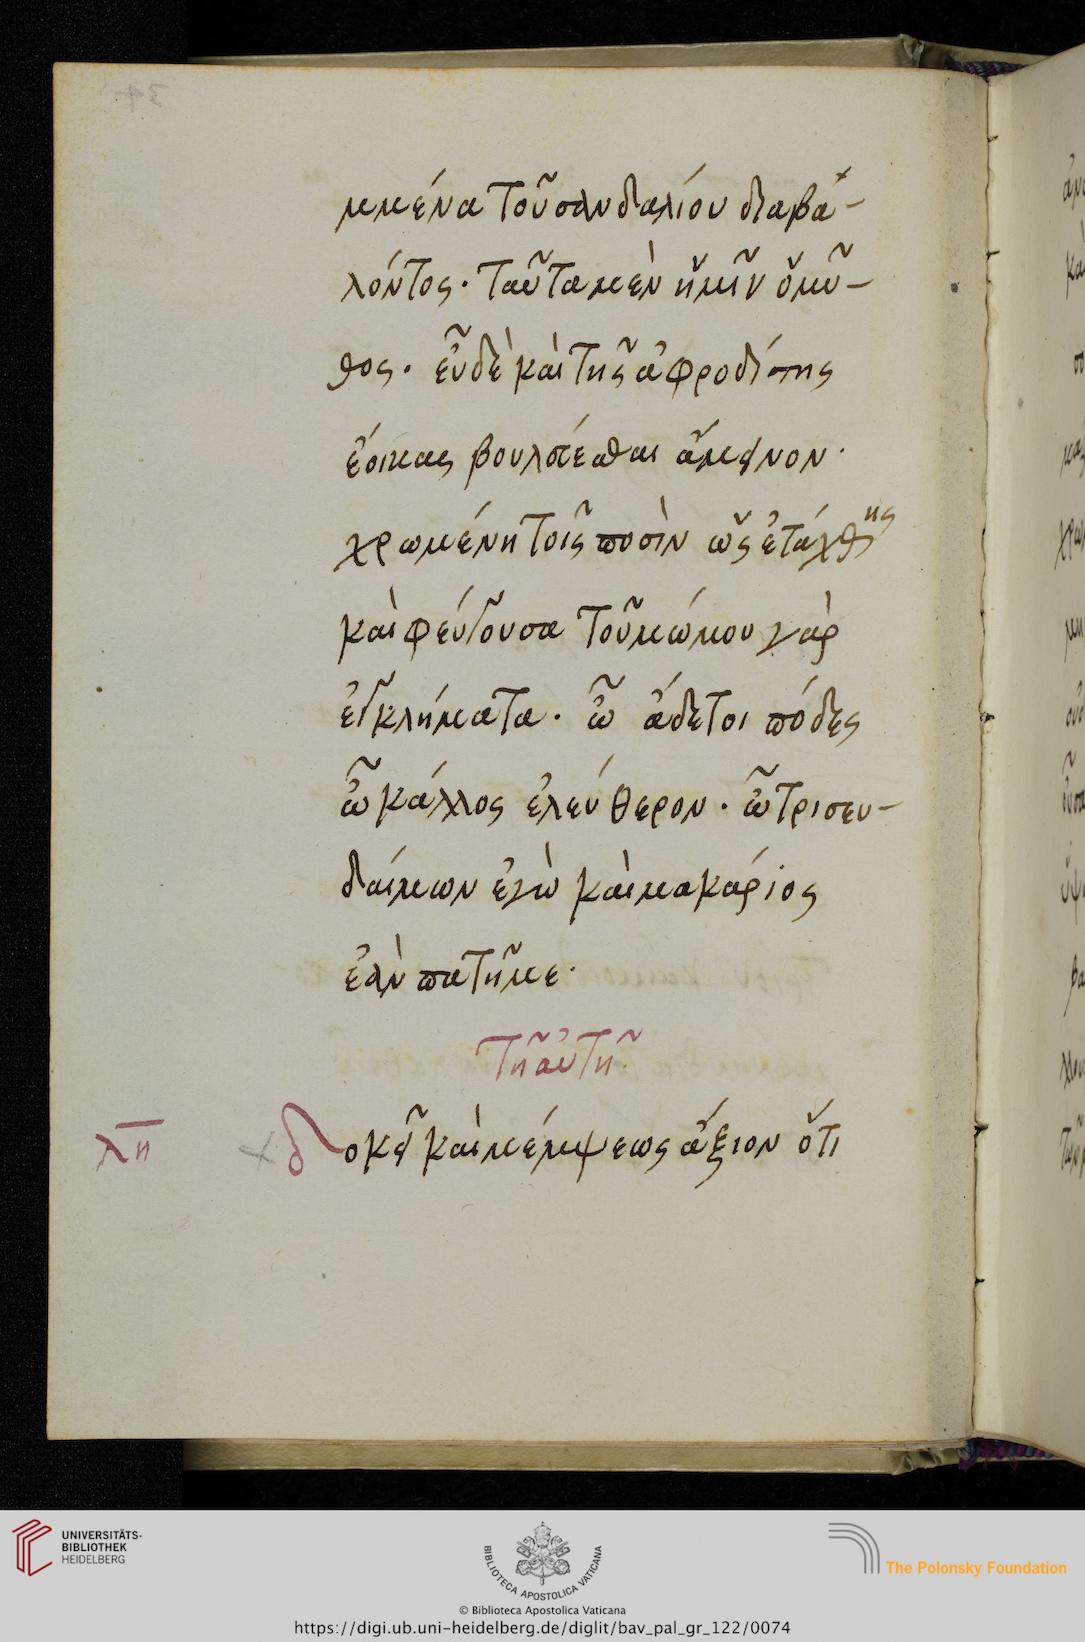 34
μμένα τοῦ σανδαλίου διαβα-
λόντος· ταῦτα μὲν ἡμῖν ὁ μῦ-
θος· εὖ δὲ καὶ τῆς ἀφροδίτης
ἔοικας βούλεσθαι ἄμεινον·
χρωμένη τοῖς ποσὶν ὡς ἐτάχθης
καὶ φεύγουσα τοῦ μώμου γὰρ
ἐγκλήματα· ὦ ἄδετοι πόδες
ὦ κάλλος ἐλεύθερον· ὦ τρισευ-
δαίμων ἐγὼ καὶ μακάριος
ἐὰν πατῆς με·
τῇ αὐτῇ
λη
δοκεῖ καὶ μέμψεως ἄξιον ὅτι
UNIVERSITÄTS-
BIBLIOTHEK
HEIDELBERG
BIBLIOTECA APOSTOLICA VATICANA
The Polonsky Foundation
© Biblioteca Apostolica Vaticana
https://digi.ub.uni-heidelberg.de/diglit/bav_pal_gr_122/0074